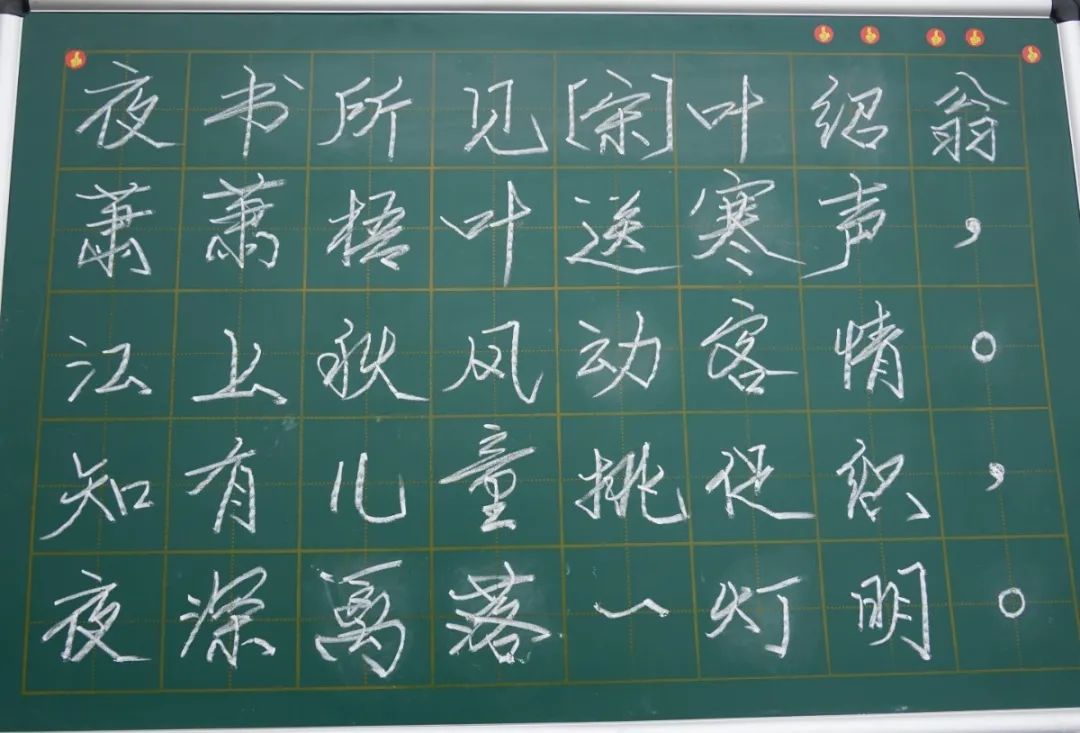 夜书所见[宋]叶绍翁
萧萧梧叶送寒声，
江上秋风动客情。
知有儿童挑促织，
夜深篱落一灯明。